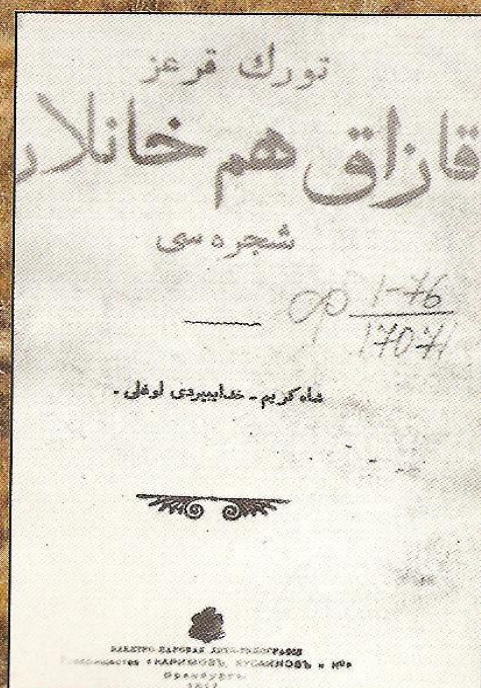 تورك قرغز
قازاق هم خانلار
شجره سى
1-76
17071
شاه كريم - خدايبيردى اوغلى -
ЭЛЕКТРО-ПАРОВАЯ ЛИТО-ТИПОГРАФІЯ
Товарищества «КАРИМОВЪ, ХУСАИНОВЪ и Ко»
Оренбургъ.